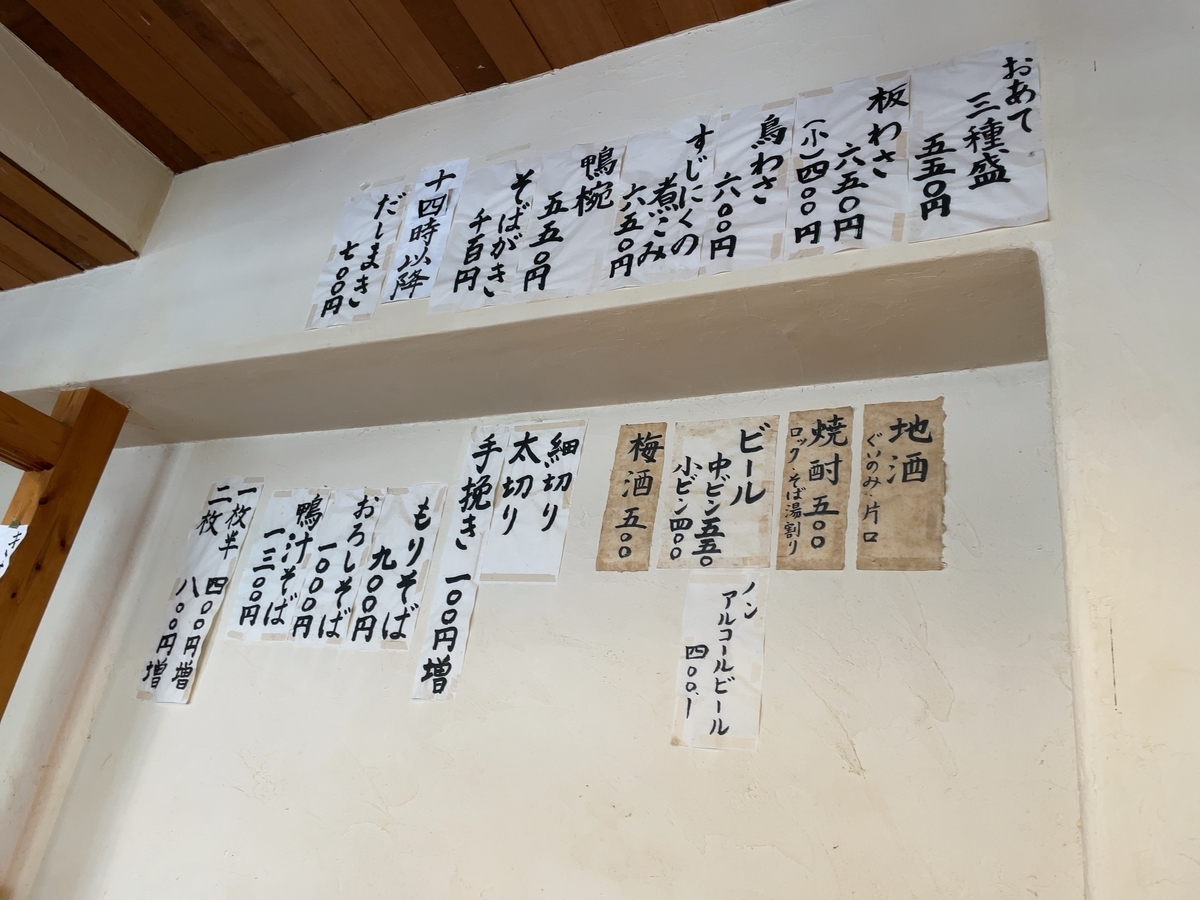 おあて
三種盛
五五〇円
板わさ
六五〇円
(小)四〇〇円
鳥わさ
六〇〇円
すじにくの
煮こみ
六五〇円
鴨椀
五五〇円
そばがき
千百円
十四時以降
だしまき
七〇〇円
地酒
ぐいのみ・片口
焼酎 五〇〇
ロック・そば湯割り
ビール
中ビン五五〇
小ビン四〇〇
ノン
アルコールビール
四〇〇.ー
梅酒 五〇〇
細切り
太切り
手挽き 一〇〇円増
もりそば
九〇〇円
おろしそば
一〇〇〇円
鴨汁そば
一三〇〇円
一枚半 四〇〇円増
二枚 八〇〇円増